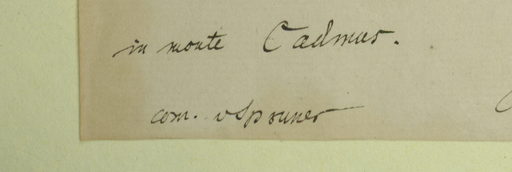 in monte Cadmus.
com. v Spruner